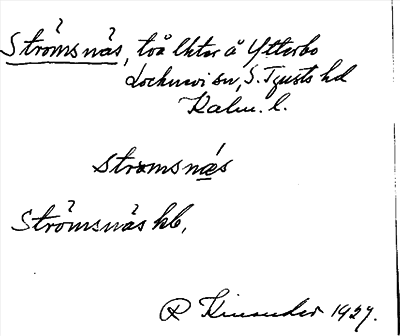 Strömsnäs, två lhter å Ytterbo
Locknevi sn, S. Tjusts hd
Kalm. l.
stromsnäs
Strömsnäs hb,
R Kinander 1927.